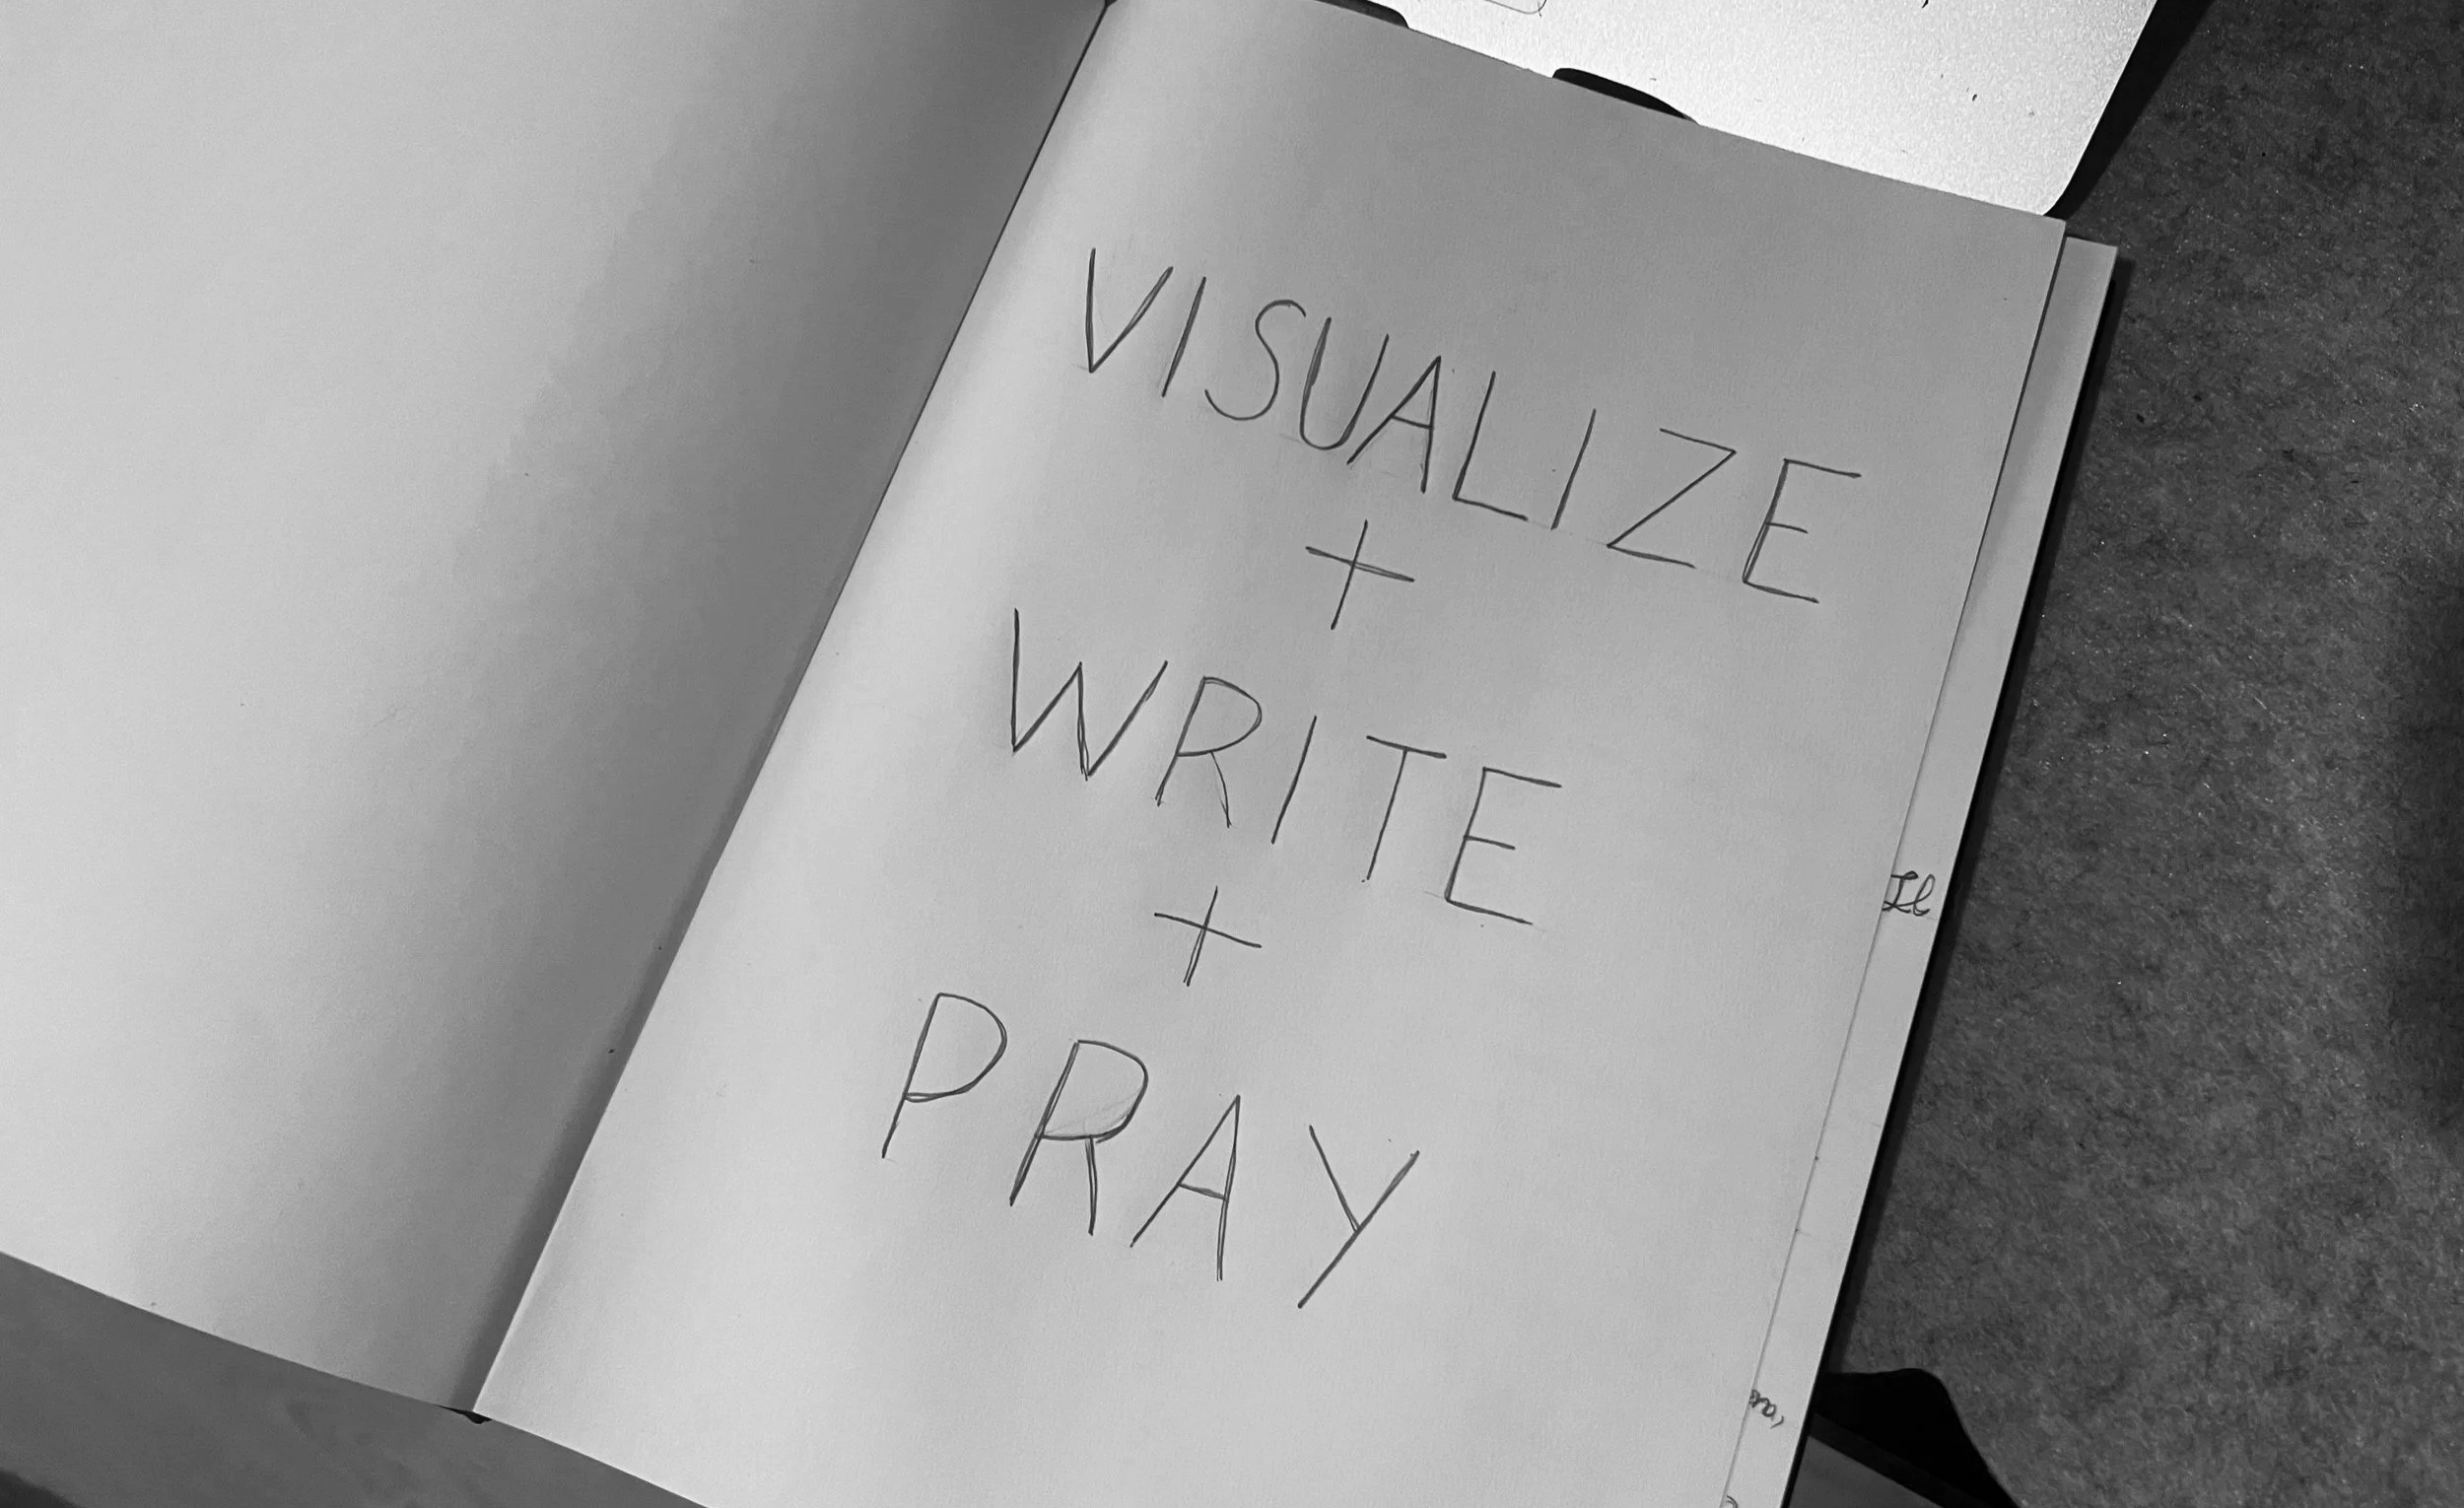 VISUALIZE
+
WRITE
+
PRAY